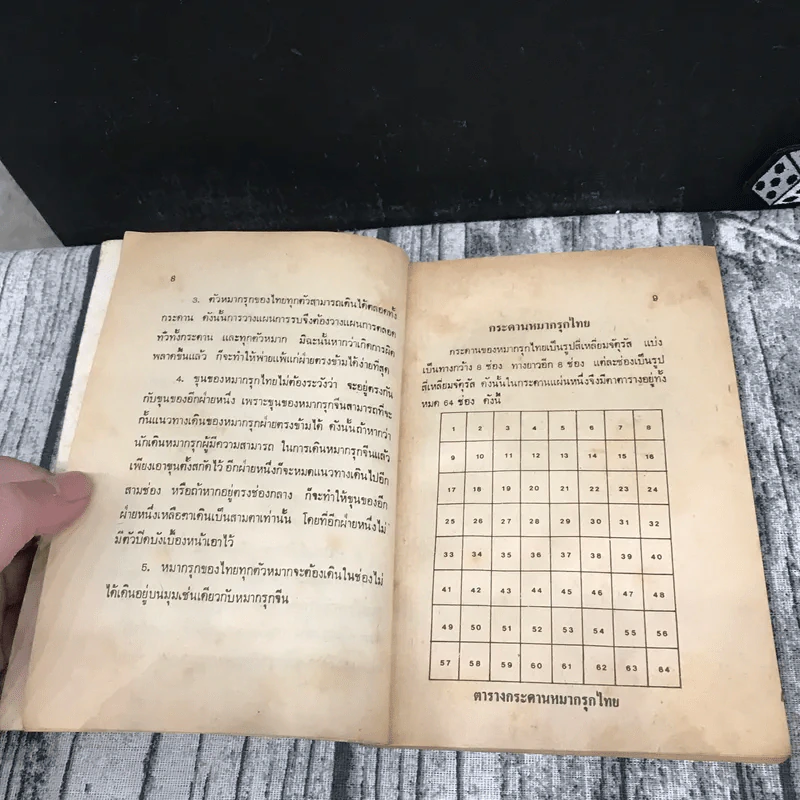 8
3. ตัวหมากรุกของไทยทุกตัวสามารถเดินได้ตลอดทั้ง
กระดาน ดังนั้นการวางแผนการรบจึงต้องวางแผนการตลอด
ทั่วทั้งกระดาน และทุกตัวหมาก มิฉะนั้นหากว่าเกิดการผิด
พลาดขึ้นแล้ว ก็จะทำให้พ่ายแพ้แก่ฝ่ายตรงข้ามได้ง่ายที่สุด
4. ขุนของหมากรุกไทยไม่ต้องระวังว่า จะอยู่ตรงกัน
กับขุนของอีกฝ่ายหนึ่ง เพราะขุนของหมากรุกจีนสามารถที่จะ
กั้นแนวทางเดินของหมากรุกฝ่ายตรงข้ามได้ ดังนั้นถ้าหากว่า
นักเดินหมากรุกผู้มีความสามารถ ในการเดินหมากรุกจีนแล้ว
เพียงเอาขุนตั้งสกัดไว้ อีกฝ่ายหนึ่งก็จะหมดแนวทางเดินไปอีก
สามช่อง หรือถ้าหากอยู่ตรงช่องกลาง ก็จะทำให้ขุนของอีก
ฝ่ายหนึ่งเหลือตาเดินเป็นสามตาเท่านั้น โดยที่อีกฝ่ายหนึ่งไม่
มีตัวปิดบังเบื้องหน้าเอาไว้
5. หมากรุกของไทยทุกตัวหมากจะต้องเดินในช่องไม่
ได้เดินอยู่บนมุมเช่นเดียวกับหมากรุกจีน
9
กระดานหมากรุกไทย
กระดานของหมากรุกไทยเป็นรูปสี่เหลี่ยมจัตุรัส แบ่ง
เป็นทางกว้าง 8 ช่อง ทางยาวอีก 8 ช่อง แต่ละช่องเป็นรูป
สี่เหลี่ยมจัตุรัส ดังนั้นในกระดานแผ่นหนึ่งจึงมีตาตารางอยู่ทั้ง
หมด 64 ช่อง ดังนี้
1 2 3 4 5 6 7 8
9 10 11 12 13 14 15 16
17 18 19 20 21 22 23 24
25 26 27 28 29 30 31 32
33 34 35 36 37 38 39 40
41 42 43 44 45 46 47 48
49 50 51 52 53 54 55 56
57 58 59 60 61 62 63 64
ตารางกระดานหมากรุกไทย